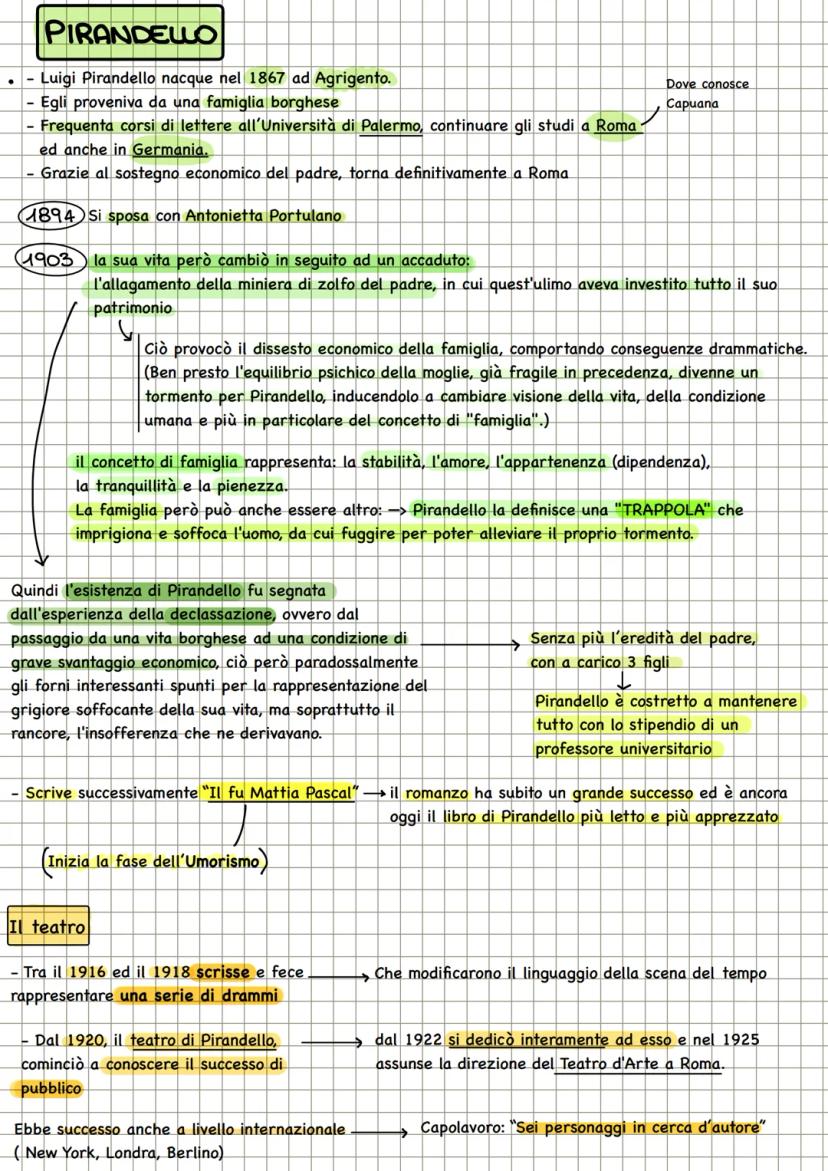 PIRANDELLO
- Luigi Pirandello nacque nel 1867 ad Agrigento.
Dove conosce
Capuana
- Egli proveniva da una famiglia borghese
- Frequenta corsi di lettere all'Università di Palermo, continuare gli studi a Roma
ed anche in Germania.
- Grazie al sostegno economico del padre, torna definitivamente a Roma
1894 Si sposa con Antonietta Portulano
1903 la sua vita però cambiò in seguito ad un accaduto:
l'allagamento della miniera di zolfo del padre, in cui quest'ulimo aveva investito tutto il suo
patrimonio
Ciò provocò il dissesto economico della famiglia, comportando conseguenze drammatiche.
(Ben presto l'equilibrio psichico della moglie, già fragile in precedenza, divenne un
tormento per Pirandello, inducendolo a cambiare visione della vita, della condizione
umana e più in particolare del concetto di "famiglia".)
il concetto di famiglia rappresenta: la stabilità, l'amore, l'appartenenza (dipendenza),
la tranquillità e la pienezza.
La famiglia però può anche essere altro: —> Pirandello la definisce una "TRAPPOLA" che
imprigiona e soffoca l'uomo, da cui fuggire per poter alleviare il proprio tormento.
Quindi l'esistenza di Pirandello fu segnata
dall'esperienza della declassazione, ovvero dal
passaggio da una vita borghese ad una condizione di
grave svantaggio economico, ciò però paradossalmente
gli forni interessanti spunti per la rappresentazione del
grigiore soffocante della sua vita, ma soprattutto il
rancore, l'insofferenza che ne derivavano.
Senza più l'eredità del padre,
con a carico 3 figli
Pirandello è costretto a mantenere
tutto con lo stipendio di un
professore universitario
- Scrive successivamente "Il fu Mattia Pascal" → il romanzo ha subito un grande successo ed è ancora
oggi il libro di Pirandello più letto e più apprezzato
(Inizia la fase dell'Umorismo)
Il teatro
- Tra il 1916 ed il 1918 scrisse e fece
rappresentare una serie di drammi
Che modificarono il linguaggio della scena del tempo
- Dal 1920, il teatro di Pirandello,
cominciò a conoscere il successo di
pubblico
dal 1922 si dedicò interamente ad esso e nel 1925
assunse la direzione del Teatro d'Arte a Roma.
Ebbe successo anche a livello internazionale
( New York, Londra, Berlino)
Capolavoro: "Sei personaggi in cerca d'autore"